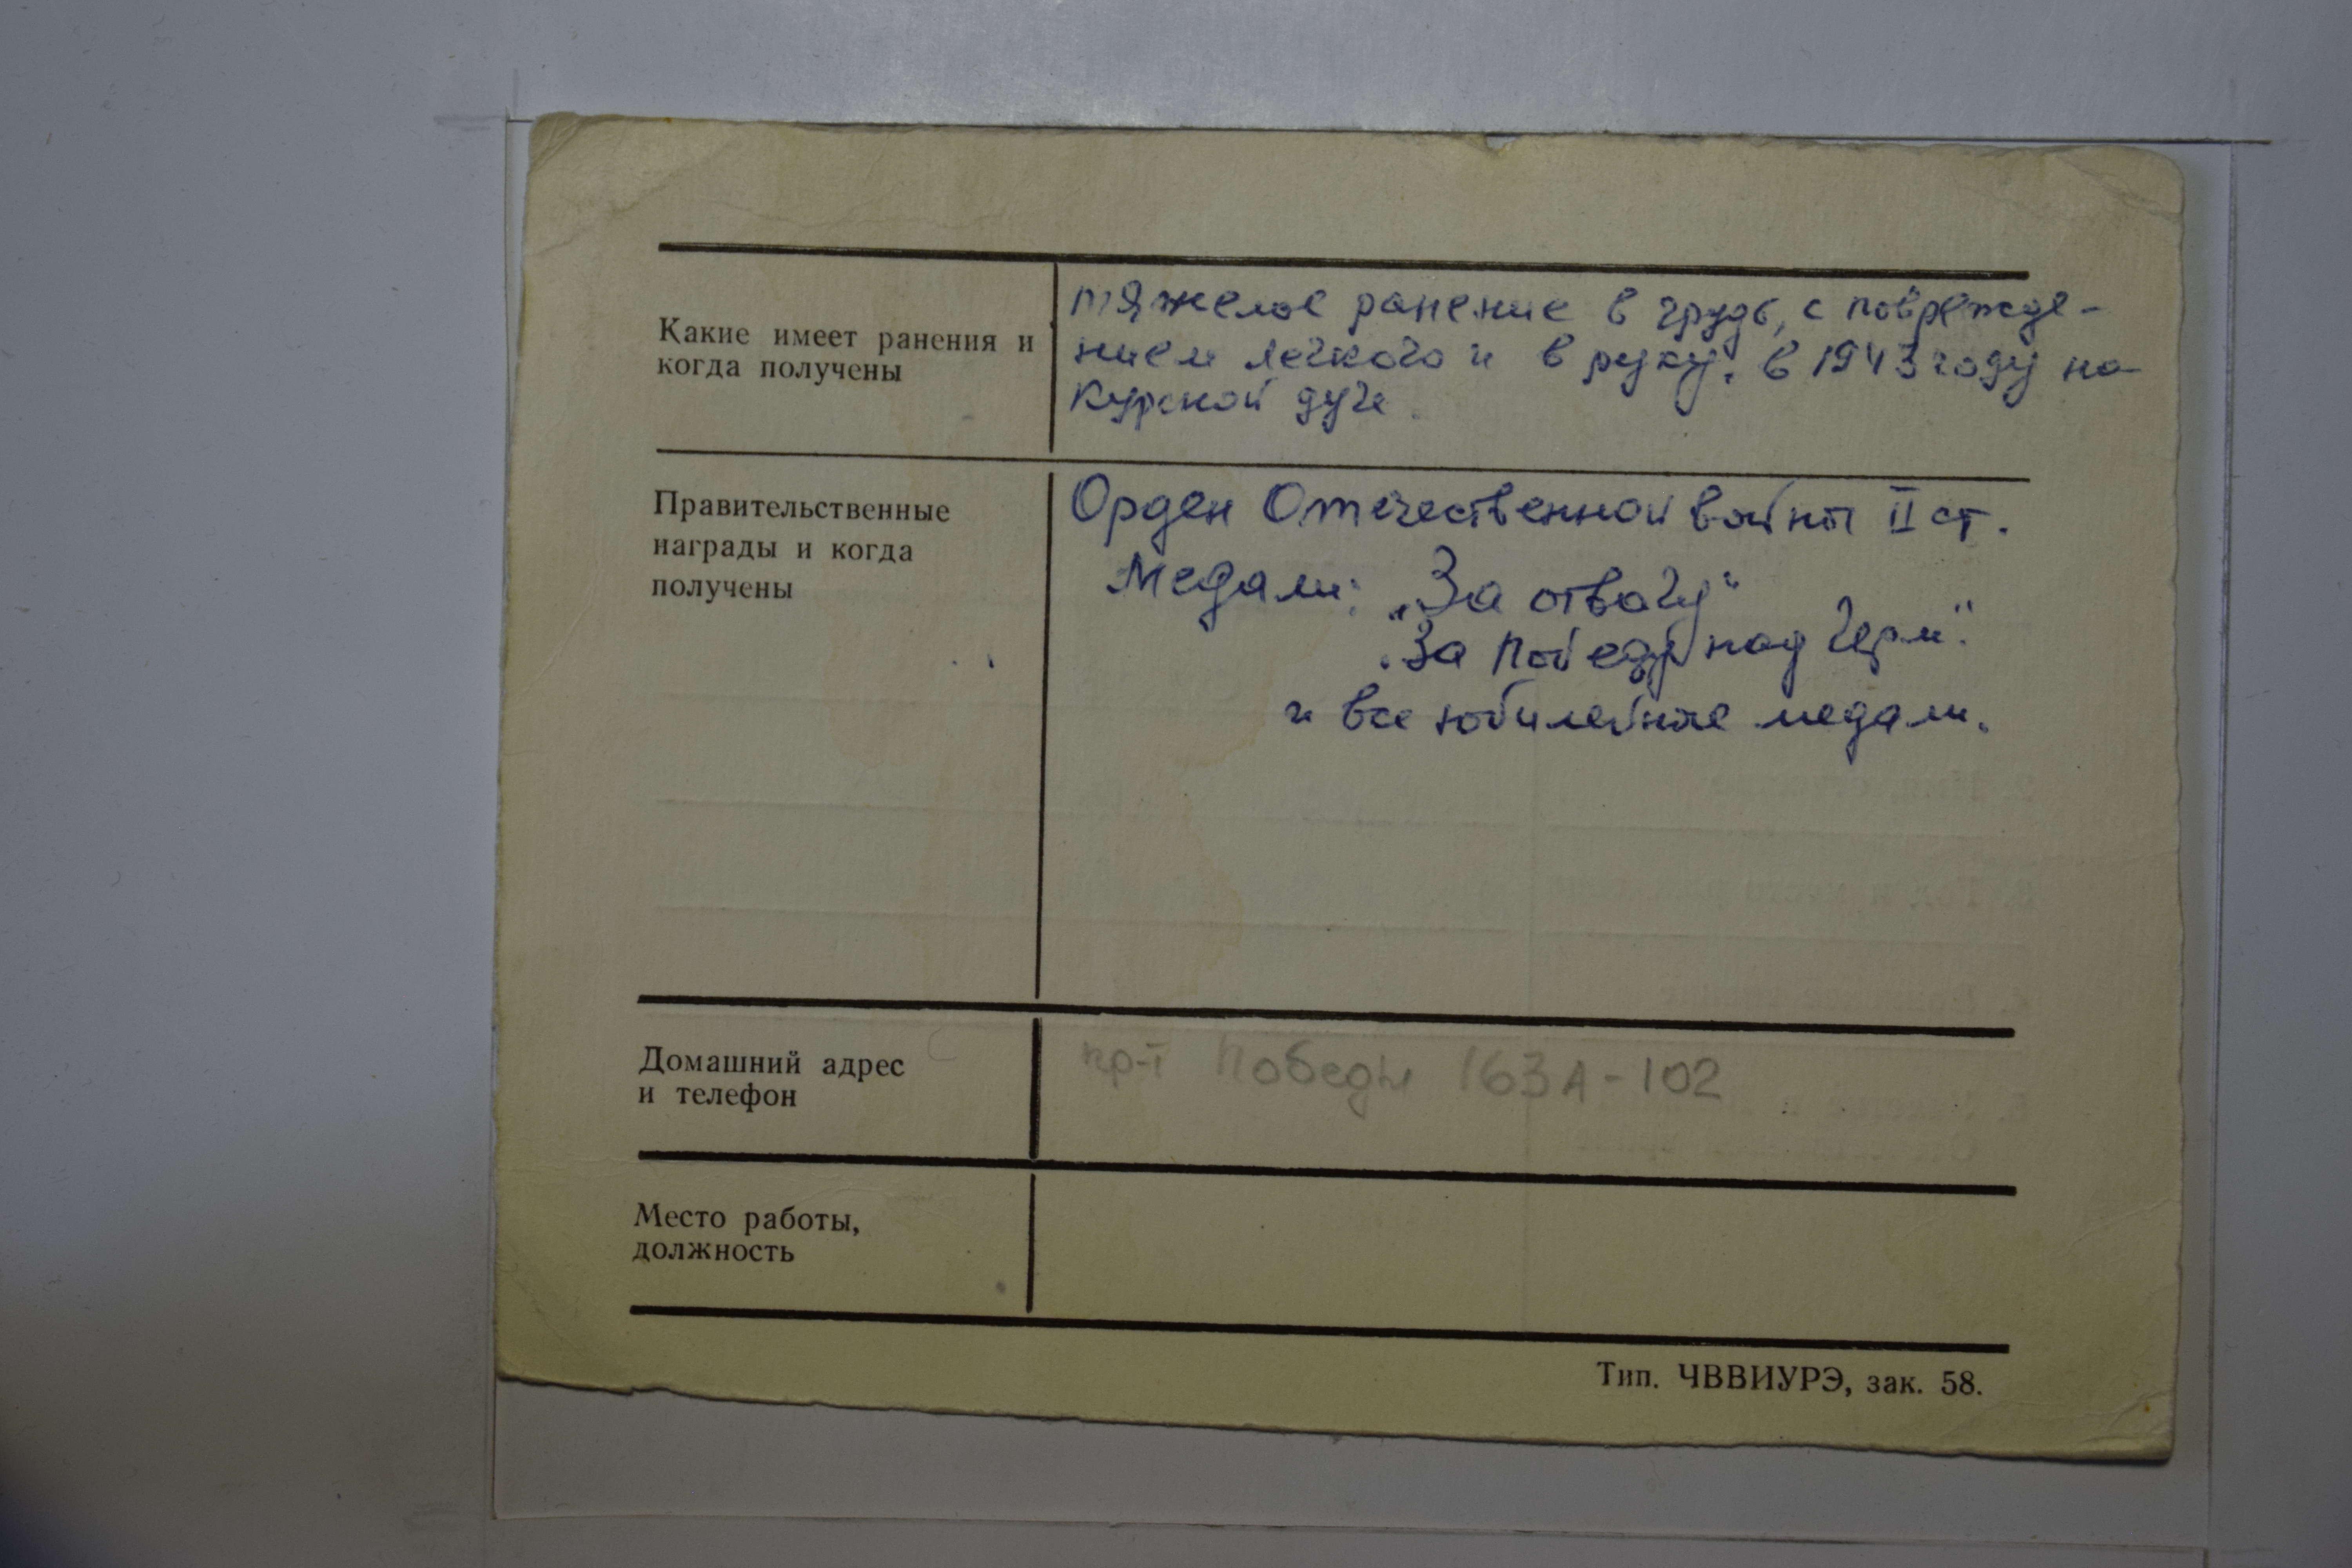 Какие имеет ранения и
когда получены
тяжелое ранение в грудь, с поврежде-
нием легкого и в руку. в 1943 году на
Курской дуге.
Правительственные
награды и когда
получены
Орден Отечественной войны II ст.
Медали: „За отвагу"
„За победу над Герм".
и все юбилейные медали.
Домашний адрес
и телефон
пр-т Победы 163А-102
Место работы,
должность
Тип. ЧВВИУРЭ, зак. 58.